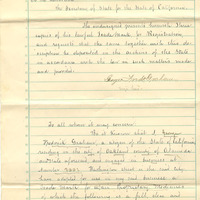 To Secretary of State for the State of California.
The undersigned presents herewith three
copies of his lawful Trade Mark for Registration,
and requests that the same together with this
description be deposited in the archives of the State
in accordance with the law in such matters made
and provided.
To all whom it may concern:
Be it known that I George
Frederick Graham, a citizen of the State of California
residing in the city of Oakland county of Alameda
and state aforesaid and engaged in business at
Number
Washington street in the said city
have adopted for use in my said business a
Trade Mark for
Medicines
of which the following is a full, clear and